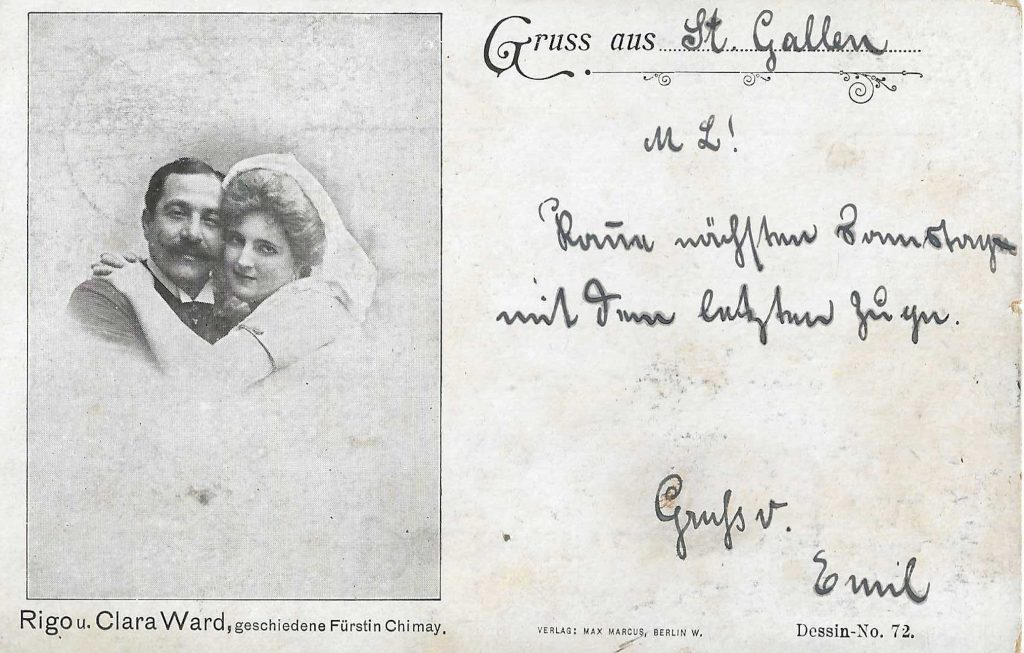 Gruss aus St. Gallen
M L!
Kome nächsten Samstag
mit dem letzten Zuge.
Gruss v.
Emil
Rigo u. Clara Ward, geschiedene Fürstin Chimay.
VERLAG: MAX MARCUS, BERLIN W.
Dessin-No. 72.